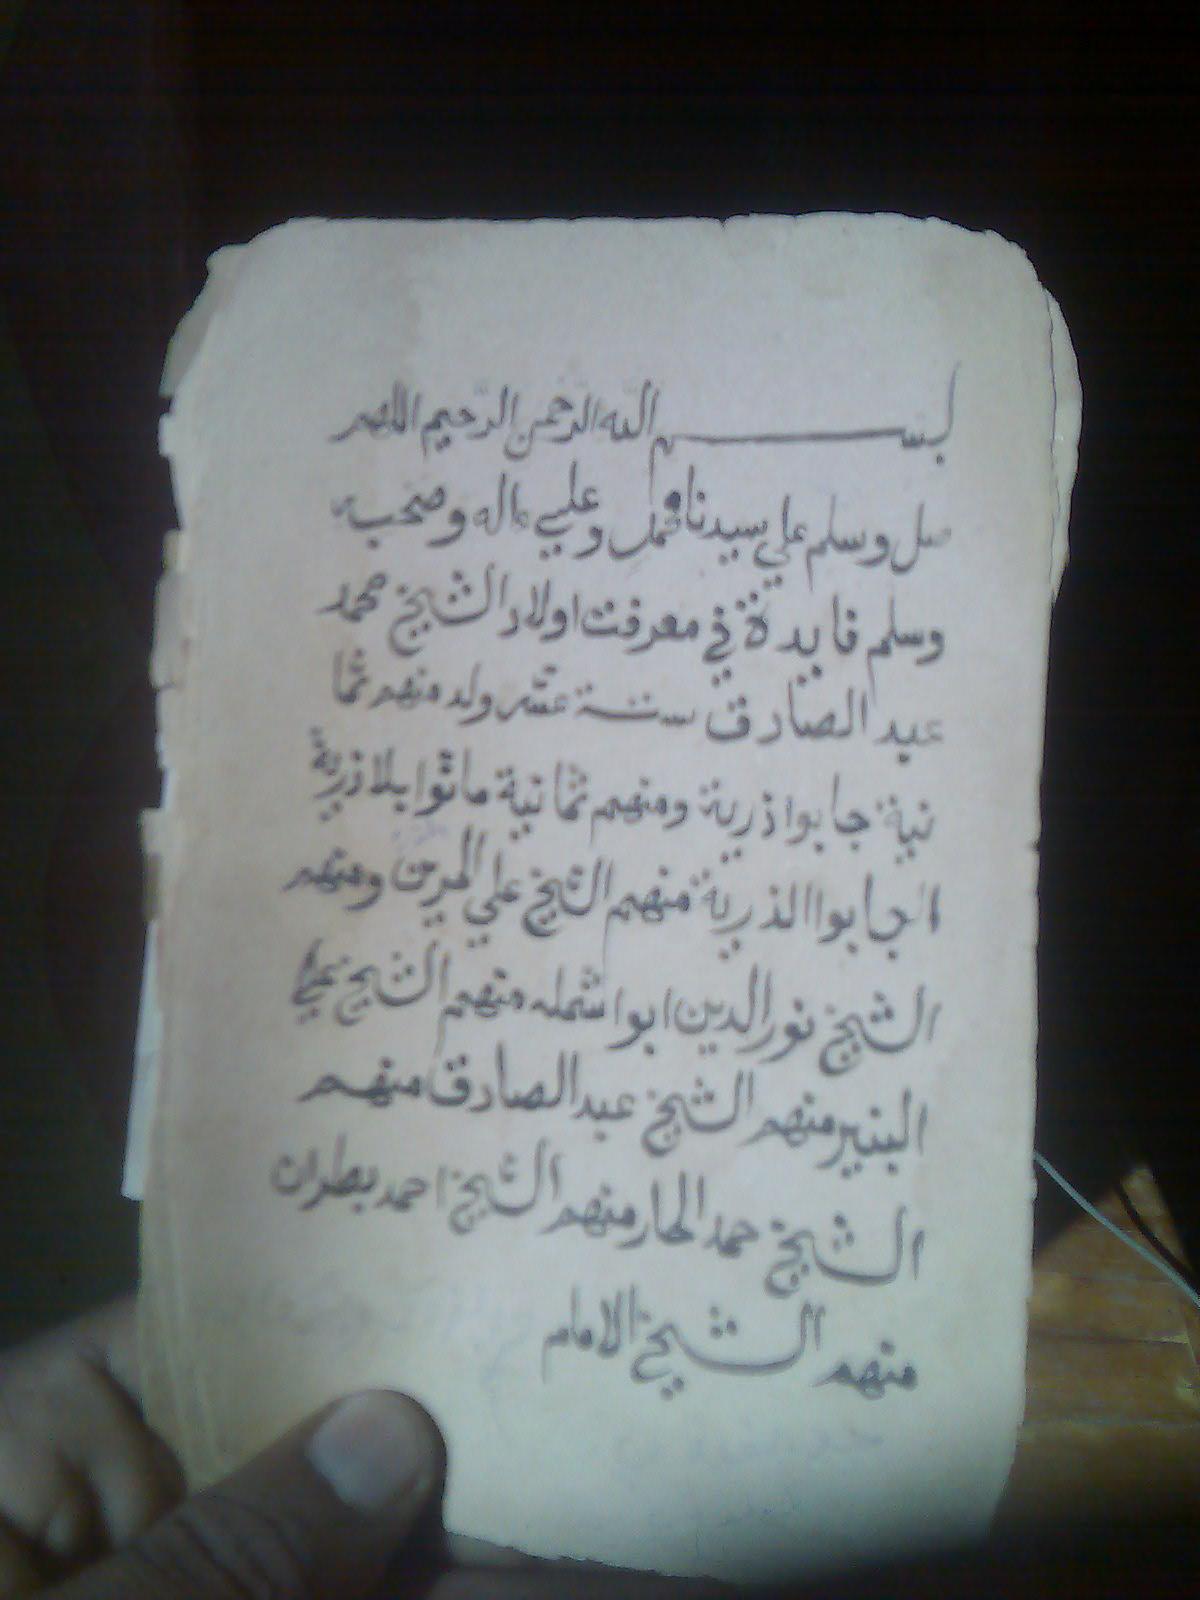 بســـــــم الله الرحمن الرحيم اللهم
صل وسلم علي سيدنا محمد وعلي ءاله وصحبه
وسلم فايدة في معرفت اولاد الشيخ محمد
عبد الصادق ستة عشر ولد منهم ثما
نية جابوا ذرية ومنهم ثمانية ماتوا بلا ذرية
الجابوا الذرية منهم الشيخ علي المرين ومنهم
الشيخ نور الدين ابوا شمله منهم الشيخ علي
البنير منهم الشيخ عبد الصادق منهم
الشيخ حمد الحار منهم الشيخ احمد بطران
منهم الشيخ الامام